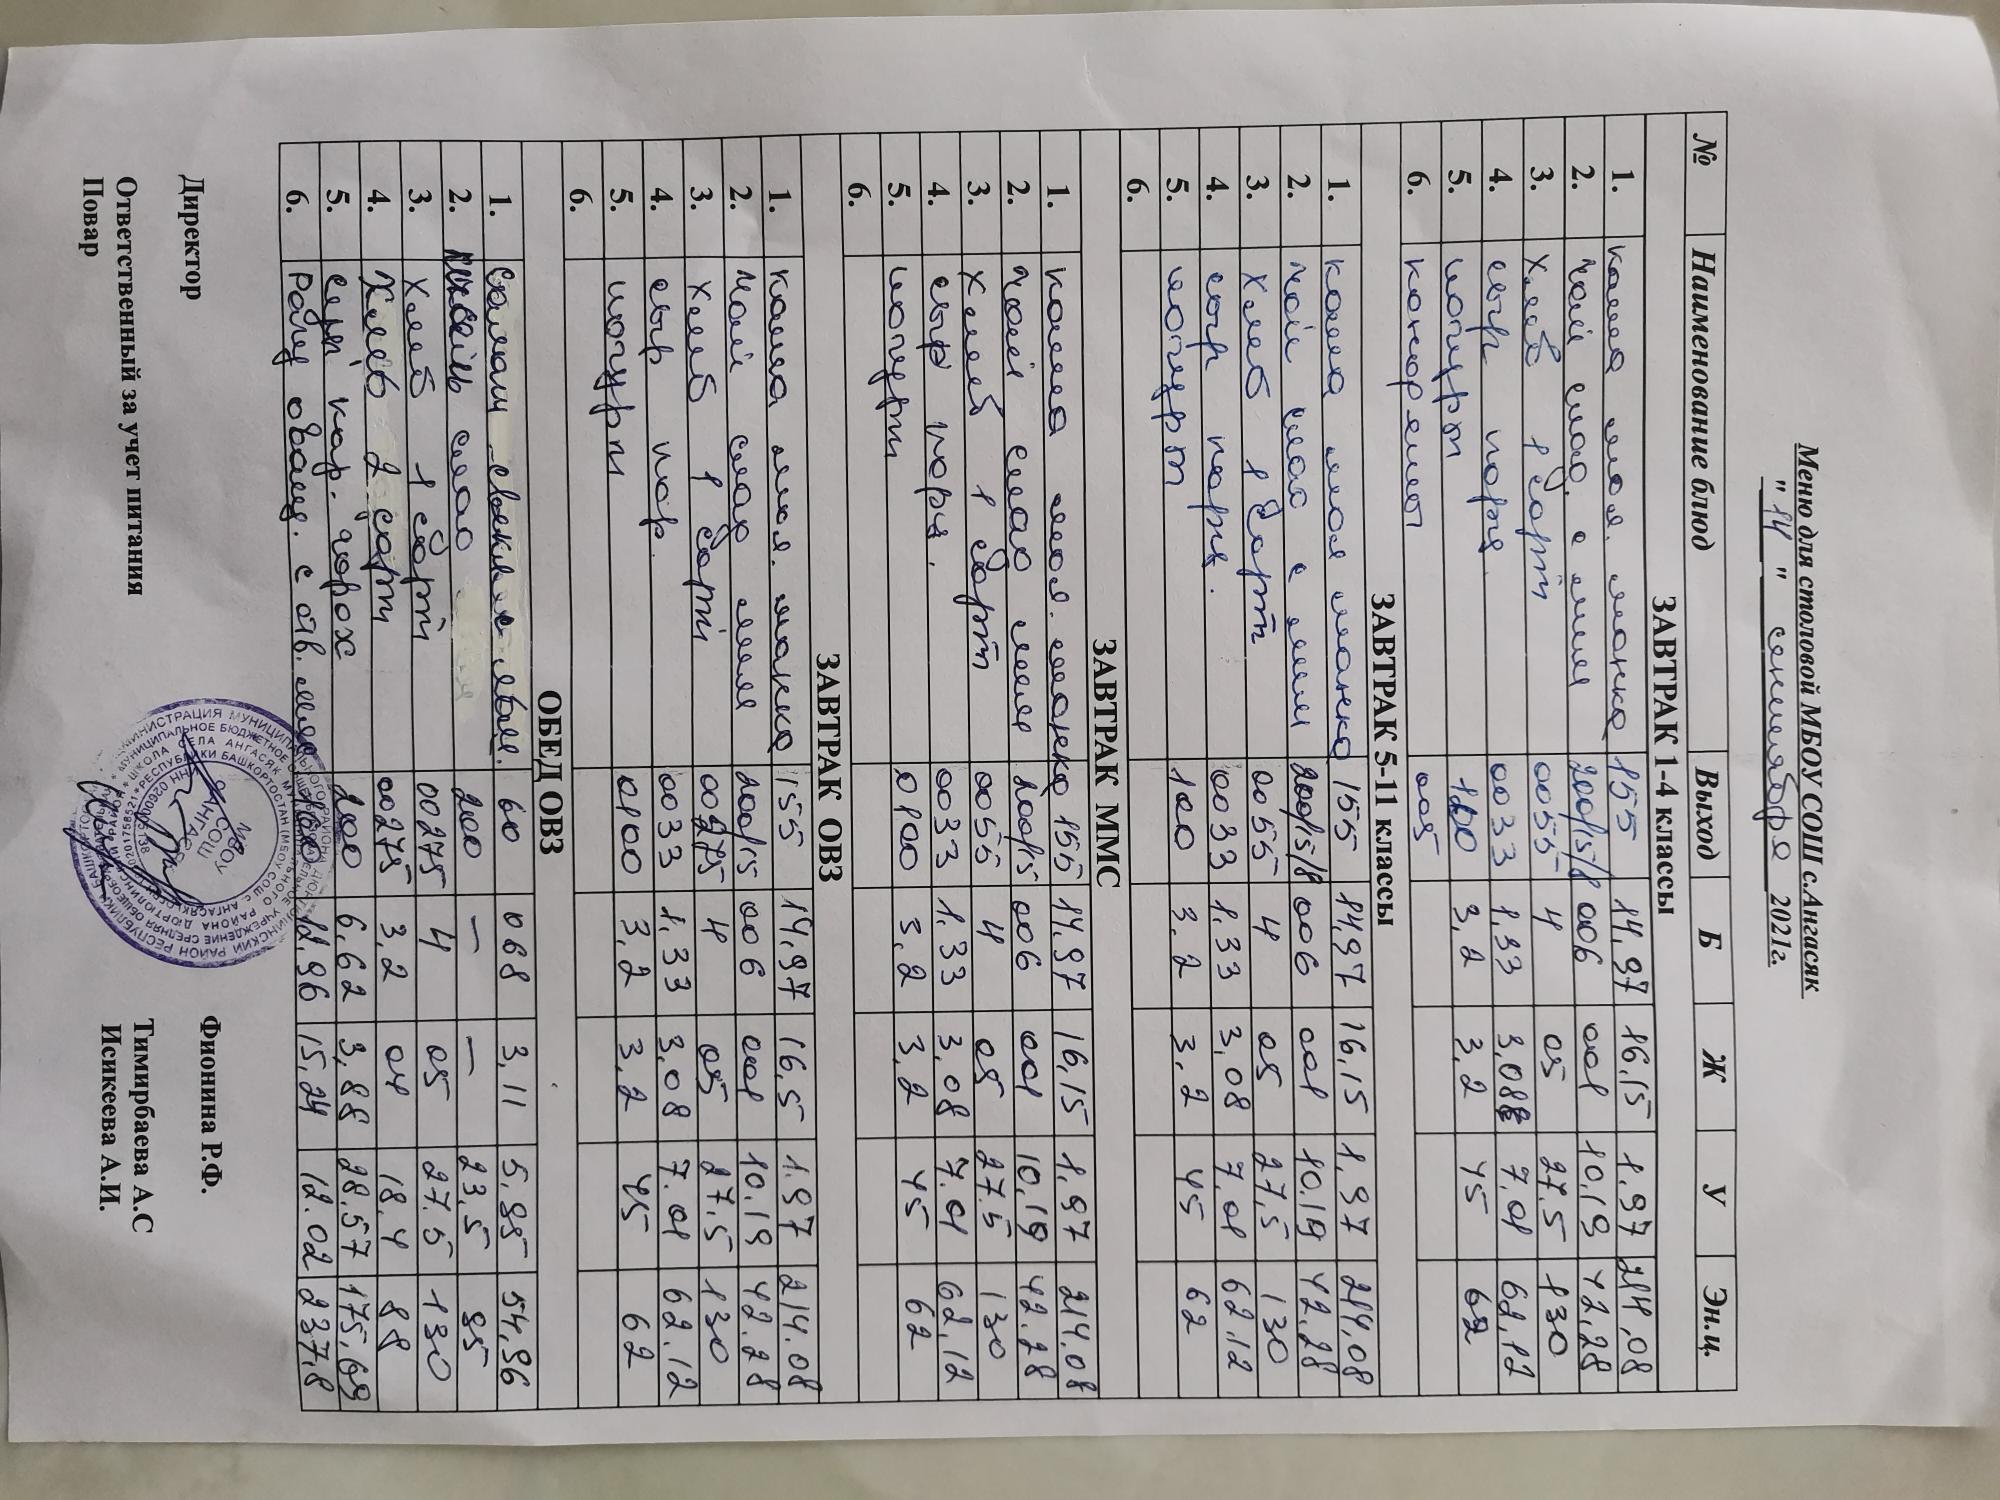 Меню для столовой МБОУ СОШ с.Ангасяк
" 14 " сентября 2021г.
№ Наименование блюд Выход Б Ж У Эн.ц.
ЗАВТРАК 1-4 классы
1. каша мол. манка 155 14,97 16,15 1,97 214,08
2. чай слад. с лим 200/15/8 006 001 10,19 42,28
3. хлеб 1 сорт 0055 4 05 27.5 130
4. сыр порц. 0033 1,33 3,08 7,01 62,12
5. йогурт 100 3,2 3,2 45 62
6. 005
ЗАВТРАК 5-11 классы
1. каша мол манка 155 14,97 16,15 1,97 214,08
2. чай слад с лим 200/15/8 006 001 10.19 42,28
3. хлеб 1 сорт 0055 4 05 27,5 130
4. сыр порц. 0033 1,33 3,08 7,01 62,12
5. йогурт 100 3,2 3,2 45 62
6.
ЗАВТРАК ММС
1. каша мол. манка 155 14,97 16,15 1,97 214.08
2. чай слад лим 200/15 006 001 10,19 42.28
3. хлеб 1 сорт 0055 4 05 27.5 130
4. сыр порц. 0033 1.33 3,08 7.01 62,12
5. йогурт 0100 3,2 3,2 45 62
6.
ЗАВТРАК ОВЗ
1. каша мол. манка 155 14,97 16,5 1.97 214.08
2. чай слад лим 200/15 006 001 10.19 42.28
3. хлеб 1 сорт 00275 4 05 27,5 130
4. сыр пор. 0033 1,33 3,08 7.01 62.12
5. йогурт 0100 3,2 3,2 45 62
6.
ОБЕД ОВЗ
1. Салат 60 068 3,11 5,95 54,96
2. кисель слад 200 — — 23,5 95
3. хлеб 1 сорт 00275 4 05 27.5 130
4. Хлеб 2 сорт 00275 3,2 04 18.4 88
5. суп кар. горох 200 6,62 3,88 28.57 175,69
6. Рагу овощ. с отв. мясо 12,96 15,24 12.02 237,8
Директор Фионина Р.Ф.
Ответственный за учет питания Тимирбаева А.С
Повар Исикеева А.И.